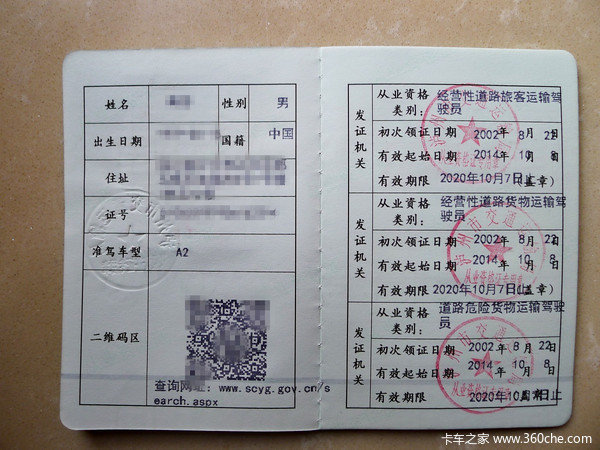 姓名 性别 男
出生日期 国籍 中国
住址
证号
准驾车型 A2
二维码区
查询网址：www.scyg.gov.cn/s
earch.aspx
发证机关
从业资格类别： 经营性道路旅客运输驾驶员
初次领证日期 2002年 8月 22日
有效起始日期 2014年 10月 8日
有效期限 2020年10月7日(盖章)
发证机关
从业资格类别： 经营性道路货物运输驾驶员
初次领证日期 2002年 8月 22日
有效起始日期 2014年 10月 8日
有效期限 2020年10月7日(盖章)
发证机关
从业资格类别： 道路危险货物运输驾驶员
初次领证日期 2002年 8月 22日
有效起始日期 2014年 10月 8日
有效期限 2020年10月
卡车之家 www.360che.com